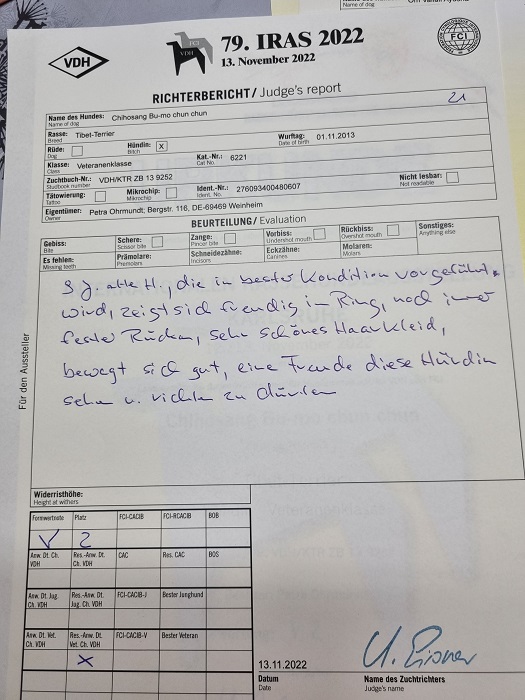 Name of dog
VDH
FCI
VDH
79. IRAS 2022
13. November 2022
FCI
RICHTERBERICHT / Judge's report
21
Name des Hundes: Chihosang Bu-mo chun chun
Name of dog
Rasse: Tibet-Terrier
Breed
Wurftag: 01.11.2013
Date of birth
Rüde:
Dog
Hündin: X
Bitch
Klasse: Veteranenklasse
Class
Kat.-Nr.: 6221
Cat No.
Zuchtbuch-Nr.: VDH/KTR ZB 13 9252
Studbook number
Tätowierung:
Tattoo
Mikrochip:
Mikrochip
Ident.-Nr.: 276093400480607
Ident. No.
Nicht lesbar:
Not readable
Eigentümer: Petra Ohrmundt; Bergstr. 116, DE-69469 Weinheim
Owner
BEURTEILUNG / Evaluation
Gebiss:
Bite
Schere:
Scissor bite
Zange:
Pincer bite
Vorbiss:
Undershot mouth
Rückbiss:
Overshot mouth
Sonstiges:
Anything else
Es fehlen:
Missing teeth
Prämolare:
Premolars
Schneidezähne:
Incisors
Eckzähne:
Canines
Molaren:
Molars
9 J. alte H., die in bester Kondition vorgeführt
wird, zeigt sich freudig im Ring, noch immer
fester Rücken, sehr schönes Haarkleid,
bewegt sich gut, eine Freude diese Hündin
sehen u. richten zu dürfen
Für den Aussteller
Widerristhöhe:
Height at withers
Formwertnote Platz FCI-CACIB FCI-RCACIB BOB
V 2
Anw. Dt. Ch. VDH Res.-Anw. Dt. Ch. VDH CAC Res. CAC BOS
Anw. Dt. Jug. Ch. VDH Res.-Anw. Dt. Jug. Ch. VDH FCI-CACIB-J Bester Junghund
Anw. Dt. Vet. Ch. VDH Res.-Anw. Dt. Vet. Ch. VDH FCI-CACIB-V Bester Veteran
X
13.11.2022
Datum
Date
Name des Zuchtrichters
Judge's name